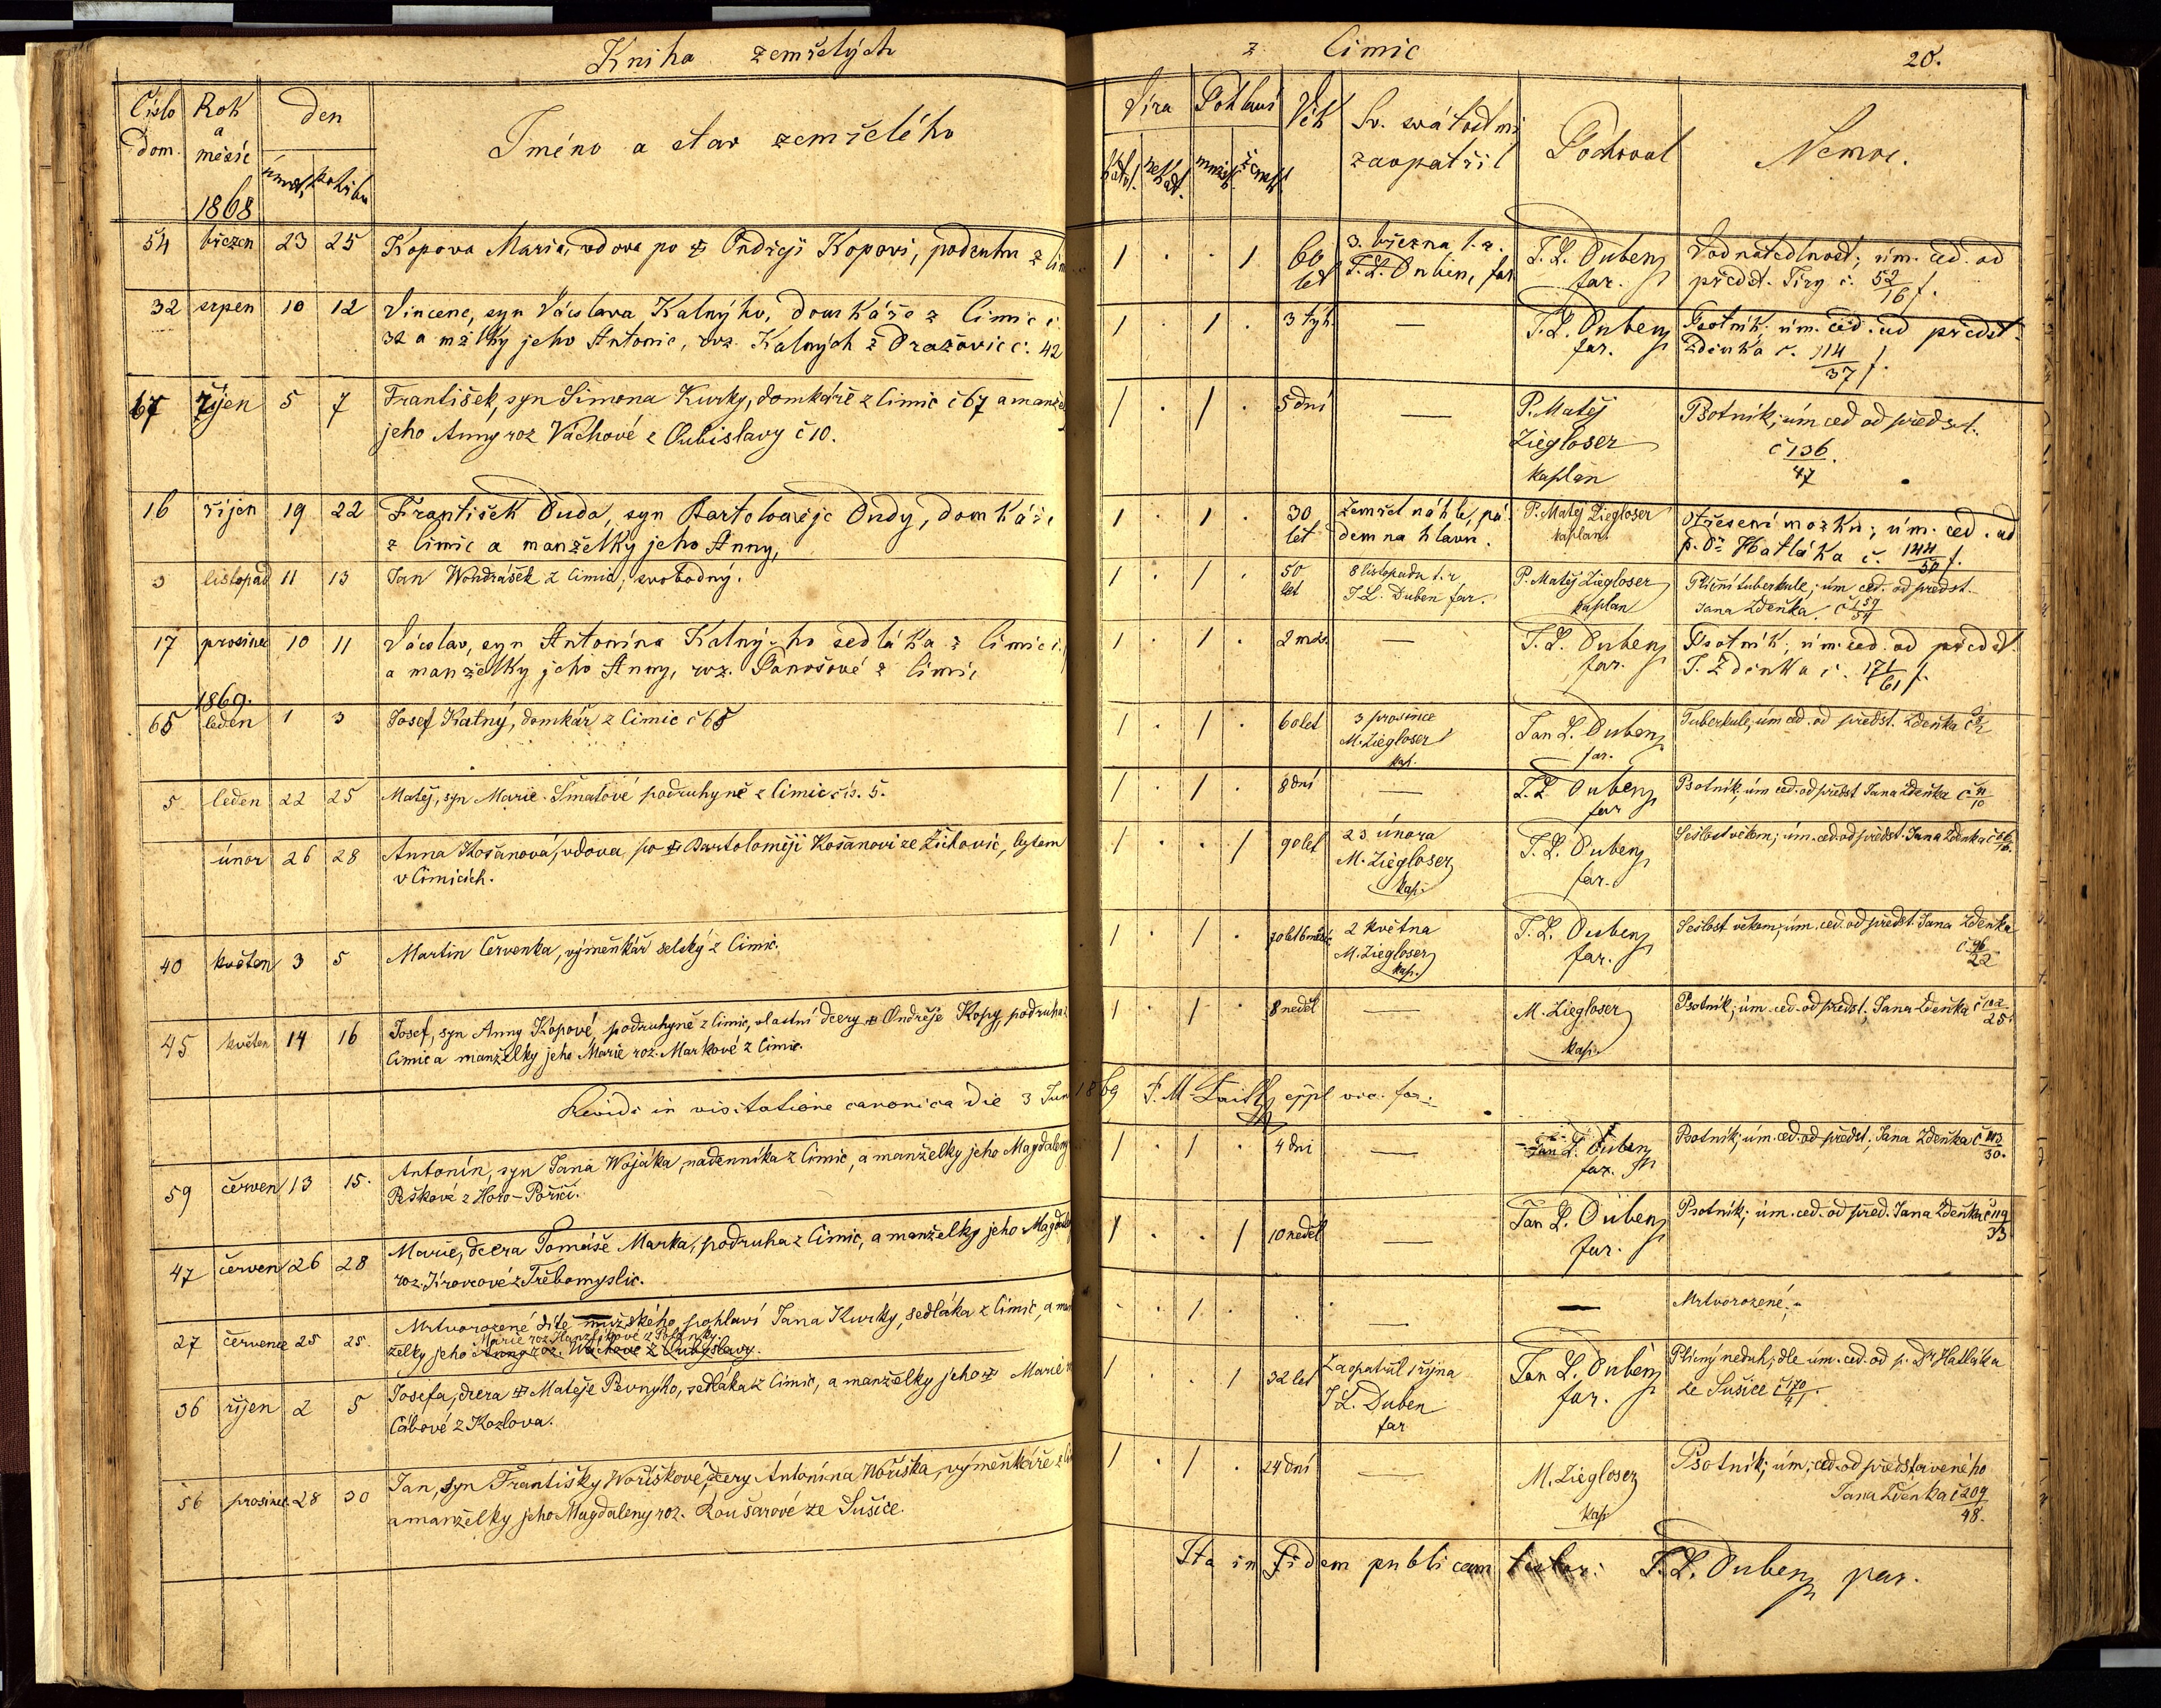 Kniha zemřelých
z Cimic
20.
Číslo dom.
Rok a měsíc
den
úmrtí
pohřbu
Jméno a stav zemřelého
Víra
kathol.
nekat.
Pohlaví
mužsk.
žensk.
Věk
Sv. svátostmi zaopatřil
Pochoval
Nemoc.
1868
54 březen 23 25 Kopova Maria, vdova po ✠ Ondřeji Kopovi, podruhu z Cim
1 . . 1 60 let 3. března t. r. J. L. Duben, far. J. L. Duben far. Vodnatedlnost; úm. ced. od
předst. Tiry č. 52/16 f.
32 srpen 10 12 Vincenc, syn Václava Kalnýho, domkáře z Cimic č.
32 a mžlky jeho Antonie, roz. Kalných z Dražovic č. 42
1 . 1 . 3 týh. — J. L. Duben far. Psotník; úm. ced. od předst.
Zdeňka č. 114/37 f.
67 říjen 5 7 František, syn Šimona Kurky, domkáře z Cimic č 67 a manžel
jeho Anny roz Váchové z Čubislavy č 10.
1 . 1 . 5 dní — P. Matěj Ziegloser kaplan Psotník; úm ced od předst.
č 136/47.
16 říjen 19 22 František Duda, syn Bartoloměje Dudy, domkáře
z Cimic a manželky jeho Anny,
1 . 1 . 30 let Zemřel náhle, pádem na hlavu. P. Matěj Ziegloser kaplan Otřesení mozku; úm. ced. od
p. Dr Hatláka č. 144/50 f.
3 listopad 11 13 Jan Wondrášek z Cimic; svobodný.
1 . 1 . 50 let 8 listopadu t. r. J L. Duben far. P. Matěj Ziegloser kaplan Plicní tuberkule; úm ced. od předst.
Jana Zdeňka č 159/54
17 prosinec 10 11 Václav, syn Antonína Kalnýho sedláka z Cimic č.
a manželky jeho Anny, roz. Panošové z Cimic
1 . 1 . 2 měs. — J. L. Duben far. Psotník; úm. ced. od předst.
J. Zdeňka č. 171/61 f.
1869.
65 leden 1 3 Josef Kalný, domkář z Cimic č 65
1 . 1 . 60 let 3 prosince M. Ziegloser kap. Jan L. Duben far. Tuberkule; úm ced. od předst. Zdeňka č
5 leden 22 25 Matěj, syn Marie Šmatové podruhyně z Cimic čís. 5.
1 . 1 . 8 dní — J. L. Duben far Psotník; úm ced. od předst Jana Zdeňka č 11/10
únor 26 28 Anna Košanová, vdova po ✠ Bartoloměji Košanovi ze Žichovic, bytem
v Cimicích.
1 . . 1 90 let 23 února M. Ziegloser kap. J. L. Duben far. Sešlost věkem; úm. ced. od předst. Jana Zdeňka č
40 květen 3 5 Martin Červenka, výměnkář selský z Cimic.
1 . 1 . 70 let 6 měsíc 2 května M. Ziegloser kap. J. L. Duben far. Sešlost věkem; úm. ced. od předst. Jana Zdeňka
č 96/22
45 květen 14 16 Josef, syn Anny Kopové, podruhyně z Cimic, vlastní dcery ✠ Ondřeje Kopy, podruha z
Cimic a manželky jeho Marie roz. Markové z Cimic.
1 . 1 . 8 neděl — M. Ziegloser kap. Psotník; úm. ced. od předst. Jana Zdeňka č 102/25.
Revidi in visitatione canonica die 3 Jun 1869 F. M. eppl vic. for.
59 červen 13 15. Antonín, syn Jana Wojáka, nadenníka z Cimic, a manželky jeho Magdaleny
Peškové z Horo-Poříčí.
1 . 1 . 4 dni — Jan L. Duben far. Psotník; úm. ced. od předst. Jana Zdeňka č 113/30.
47 červen 26 28 Marie, dcera Tomáše Marka, podruha z Cimic, a manželky jeho Magdaleny
roz. Krovcové z Třebomyslic.
1 . . 1 10 neděl — Jan L. Duben far. Psotník; úm. ced. od před. Jana Zdeňka č 119/33
27 červenec 25 25. Mrtvorozené dítě mužského pohlaví Jana Kurky, sedláka z Cimic, a man
Marie roz. Hanzlíkové z
želky jeho Anny roz. Wachové z Čubislavy.
. . 1 . . — — Mrtvorozené.
36 říjen 2 5 Josefa, dcera ✠ Matěje Pevnýho, sedláka z Cimic, a manželky jeho ✠ Marie
Cábové z Kozlova.
1 . . 1 32 let Zaopatřil 1 října J L. Duben far Jan L. Duben far. Plicný neduh; dle úm. ced. od p. Dr Hatláka
ze Sušice č 170/41.
56 prosinec 28 30 Jan, syn Františky Woříškové, dcery Antonína Woříška, výměnkáře z Ci
a manželky jeho Magdaleny roz. Koušarové ze Sušice.
1 . 1 . 24 dní — M. Ziegloser kap Psotník; úm. ced. od představeného
Jana Zdeňka č 209/48.
Ita in fidem publicam testor: J. L. Duben par.